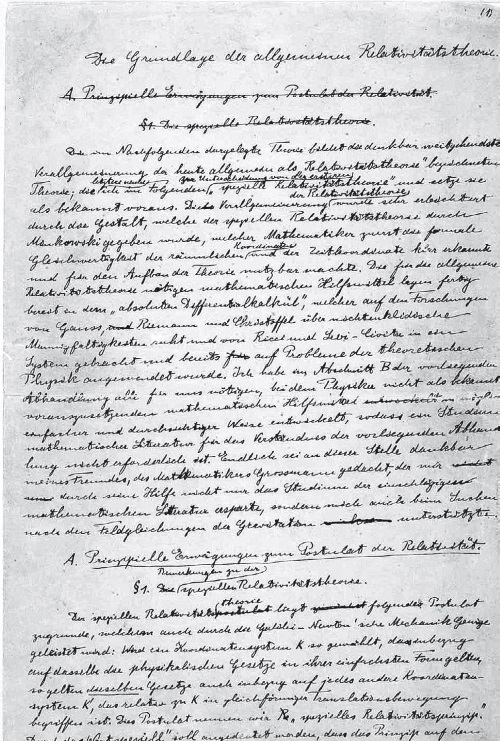 (1)
Die Grundlage der allgemeinen Relativitätstheorie.
A. Prinzipielle Erwägungen zum Postulat der Relativität.
§1. Die spezielle Relativitätstheorie.
Die im Nachfolgenden dargelegte Theorie bildet die denkbar weitgehendste
Verallgemeinerung der heute allgemein als „Relativitätstheorie" bezeichneten
Theorie; die letztere nenne ich im Folgenden zur Unterscheidung von der ersteren „spezielle Relativitätstheorie" und setze sie
als bekannt voraus. Die Verallgemeinerung der Relativitätstheorie wurde sehr erleichtert
durch die Gestalt, welche der speziellen Relativitätstheorie durch
Minkowski gegeben wurde, welcher Mathematiker zuerst die formale
Gleichwertigkeit der räumlichen Koordinaten und der Zeitkoordinate klar erkannte
und für den Aufbau der Theorie nutzbar machte. Die für die allgemeine
Relativitätstheorie nötigen mathematischen Hilfsmittel lagen fertig
bereit in dem „absoluten Differentialkalkül", welcher auf den Forschungen
von Gauss, und Riemann und Christoffel über nichteuklidische
Mannigfaltigkeiten ruht und von Ricci und Levi-Civita in ein
System gebracht und bereits auf Probleme der theoretischen
Physik angewendet wurde. Ich habe im Abschnitt B der vorliegenden
Abhandlung alle für uns nötigen, bei dem Physiker nicht als bekannt
vorauszusetzenden mathematischen Hilfsmittel entwickelt in möglichst
einfacher und durchsichtiger Weise entwickelt, sodass ein Studium
mathematischer Literatur für das Verständnis der vorliegenden Abhand
lung nicht erforderlich ist. Endlich sei an dieser Stelle dankbar
meines Freundes, des Mathematikers Grossmann gedacht, der mir
durch seine Hilfe nicht nur das Studium der einschlägigen
mathematischen Literatur ersparte, sondern mich auch beim Suchen
nach den Feldgleichungen der Gravitation unterstützte.
A. Prinzipielle Erwägungen zum Postulat der Relativität.
§1. Die Bemerkungen zu der speziellen Relativitätstheorie.
Der speziellen Relativitätspostulat theorie liegt folgendes Postulat
zugrunde, welchem auch durch die Galilei-Newton'sche Mechanik Genüge
geleistet wird: Wird ein Koordinatensystem K so gewählt, dass inbezug
auf dasselbe die physikalischen Gesetze in ihrer einfachsten Form gelten,
so gelten dieselben Gesetze auch inbezug auf jedes andere Koordinaten-
system K', das relativ zu K in gleichförmiger Translationsbewegung
begriffen ist. Dies Postulat nennen wir „spezielles Relativitätsprinzip".
Durch das Wort „speziell" soll angedeutet werden, dass das Prinzip auf den